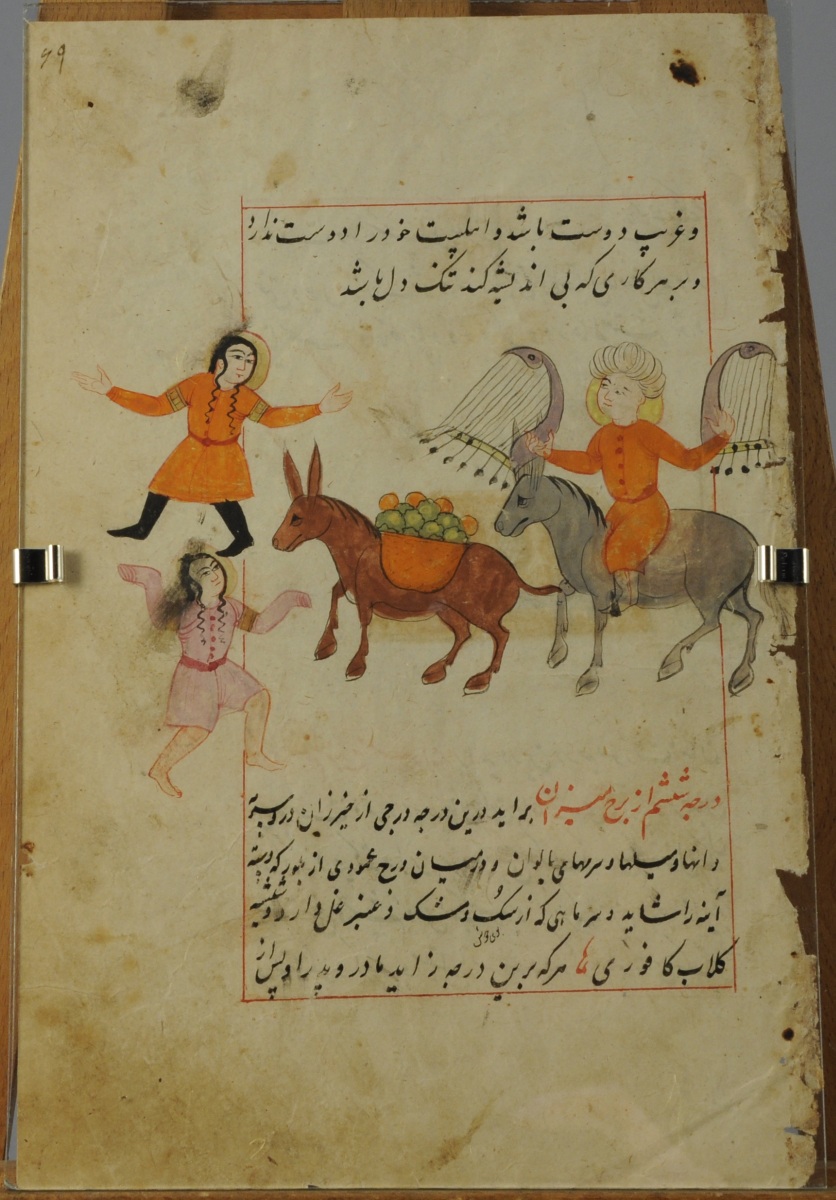 ۶۹
و غریب دوست باشد و اهلبیت خود را دوست ندارد
و بر هر کاری که بی اندیشه کند تنک دل باشد
درجه ششم از برج میزان براید درین درجه درجی از خیزران درو بسته
و انها و میلها و سرمهای بالوان و در میان درج عمودی از بلور که دسته
آینه را شاید و سر ماهی که از سک و مشک و عنبر غل دارد و شیشه
کلاب کافوری ها هرکه برین درجه زاید مادر و پدر او پس از